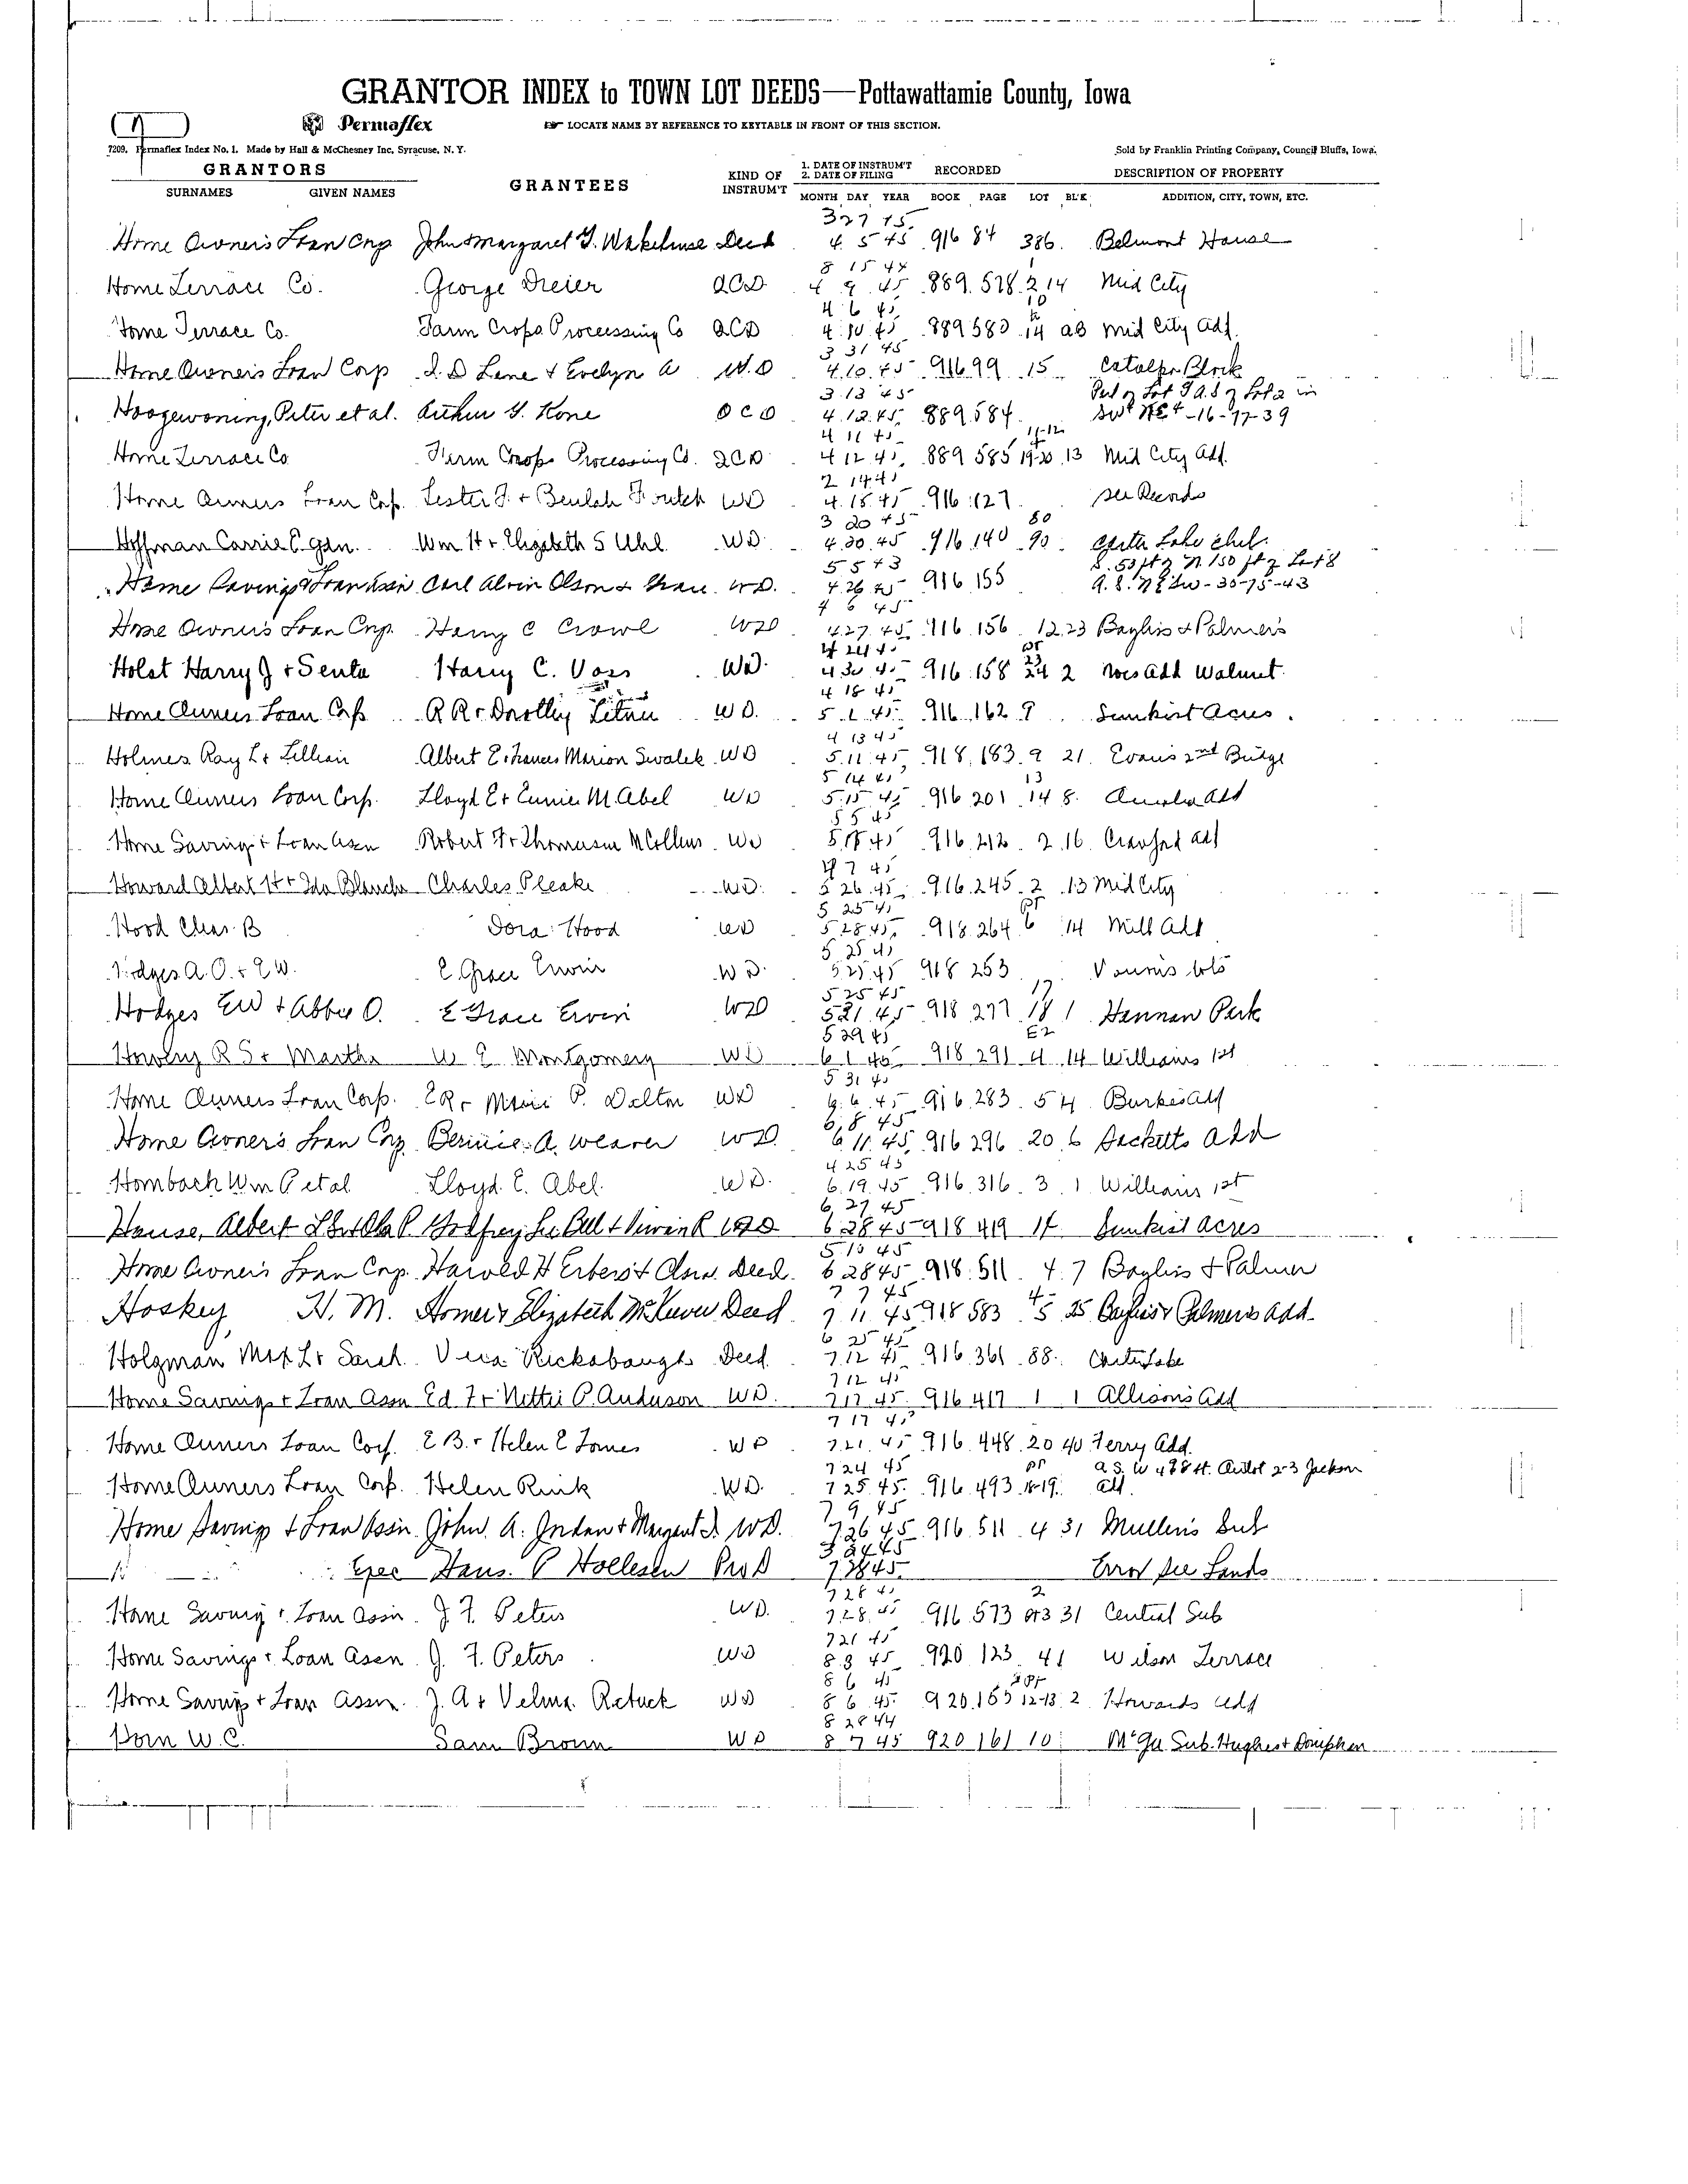 GRANTOR INDEX to TOWN LOT DEEDS—Pottawattamie County, Iowa
Permaflex LOCATE NAME BY REFERENCE TO KEYTABLE IN FRONT OF THIS SECTION.
7209. Permaflex Index No. 1. Made by Hall & McChesney Inc. Syracuse, N. Y. Sold by Franklin Printing Company, Council Bluffs, Iowa.
GRANTORS GRANTEES KIND OF INSTRUM'T 1. DATE OF INSTRUM'T 2. DATE OF FILING RECORDED DESCRIPTION OF PROPERTY
SURNAMES GIVEN NAMES MONTH DAY YEAR BOOK PAGE LOT BL'K ADDITION, CITY, TOWN, ETC.
3 27 45
Home Owner's Loan Corp John & Margaret Deed 4 5 45 916 84 386 Belmont House
8 15 44 1
Home Terrace Co. George Dreier QCD 4 9 45 889 578 2 14 Mid City
4 6 45 10
Home Terrace Co. Farm Crops Processing Co QCD 4 10 45 889 580 14 Mid City Add.
3 31 45
Home Owners Loan Corp Lane & Evelyn A W.D 4 10 45 916 99 15 Catalpa Block
3 13 45
Hoogewoning, Peter et al. Arthur Kone QCD 4 12 45 889 584 16-77-39
4 11 45 11-12
Home Terrace Co Farm Crops Processing Co. QCD 4 12 45 889 585 19-20 13 Mid City Add.
2 14 45
Home Owners Loan Corp. Lester J. & Beulah WD 4 18 45 916 127 See Records
3 20 45 80
Hoffman Carrie E. Gdn. Wm H & Elizabeth S Uhl WD 4 20 45 916 140 90 Carter Lake
5 5 43 S. 53 ft of N. 150 ft of Lot 8
Home Savings & Loan Assn Carl Alvin Olson & WD. 4 26 45 916 155 30-75-43
4 6 45
Home Owner's Loan Corp. Harry C Crowl WD 4 27 45 916 156 12 23 Bayliss & Palmer's
4 24 45 pt 23
Holst Harry J & Senta Harry C. Voss WD. 4 30 45 916 158 24 2 Add Walnut
4 18 45
Home Owners Loan Corp R R & Dorothy WD. 5 1 45 916 162 9 Sunkist Acres
4 13 45
Holmes Ray L & Lillian Albert E & Frances Marion Swalek WD 5 11 45 918 183 9 21 Evans 2nd Bridge
5 14 45 13
Home Owners Loan Corp. Lloyd E & Eunice M. Abel WD 5 15 45 916 201 14 8 Add
5 5 45
Home Savings & Loan Assn Robert F & Thomasine McCollins WD 5 18 45 916 212 2 16 Crawford Add
4 7 45
Howard Albert H & Ida Blanche Charles Pleake WD. 5 26 45 916 245 2 13 Mid City
5 25 45 pt
Hood Chas. B Dora Hood WD 5 28 45 918 264 6 14 Mill Add
5 25 45
Hodges A. O. & E W. E. Grace Erwin WD. 918 253
5 25 45 17
Hodges EW & Abbie O. E Grace Erwin WD 5 31 45 918 277 18 1 Hannan Park
5 29 45 E2
R S & Martha W E Montgomery WD 6 1 45 918 291 4 14 Williams 1st
5 31 45
Home Owners Loan Corp. E R & Marie P. Dalton WD 6 6 45 916 283 5 4 Burkes Add
6 8 45
Home Owner's Loan Corp Bernice A. Weaver WD 6 11 45 916 296 20 6 Sacketts Add
4 25 45
Hombach Wm C et al Lloyd E. Abel WD. 6 19 45 916 316 3 1 Williams 1st
6 27 45
House, Albert WD 6 28 45 918 419 14 Sunkist Acres
5 10 45
Home Owner's Loan Corp. Harold H Deed 6 28 45 918 511 4 7 Bayliss & Palmer
7 7 45 4
Hoskey H. M. Homer & Elizabeth Deed 7 11 45 918 583 5 25 Bayliss & Palmer's Add.
6 25 45
Holzman Max L & Sarah Vera Rickabaugh Deed 7 12 45 916 361 88 Carter Lake
7 12 45
Home Savings & Loan Assn Ed F & Nettie P. Anderson WD. 7 17 45 916 417 1 1 Allison's Add
7 17 45
Home Owners Loan Corp. E B. & Helen E Jones WD 7 21 45 916 448 20 40 Ferry Add.
7 24 45 pr 2-3 Jackson
Home Owners Loan Corp. Helen Rink WD. 7 25 45 916 493 18-19 Add.
7 9 45
Home Savings & Loan Assn. John A. Jordan & Margaret J. WD. 7 26 45 916 511 4 31 Mullen's Sub
3 24 45
Exec Hans P Hollesen 7 28 45 Error See Lands
7 28 45 2
Home Savings & Loan Assn. J. F. Peters WD. 7 28 45 916 573 31 Central Sub
7 21 45
Home Savings & Loan Assn J. F. Peters WD 8 3 45 920 123 41 Wilson Terrace
8 6 45
Home Savings & Loan Assn. J. A & Velma Retuck WD 8 6 45 920 155 12-13 2 Howards Add
8 28 44
Horn W. C. Sam Brown WD 8 7 45 920 161 10 McGee Sub. Hughes & Doniphan